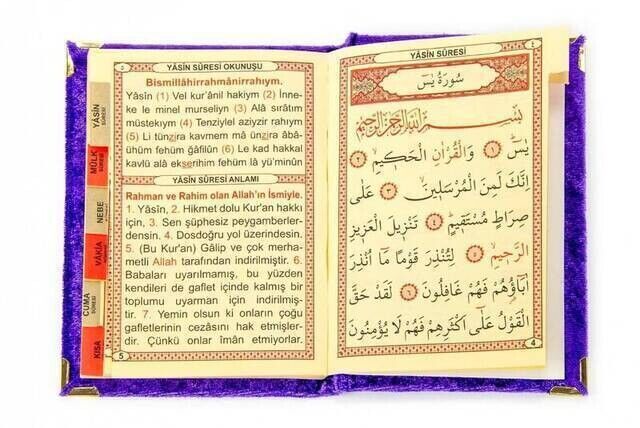 YÂSİN SÛRESİ OKUNUŞU
Bismillâhirrahmânirrahıym.
Yâsîn (1) Vel kur'ânil hakiym (2) İnne-
ke le minel murseliyn (3) Alâ sırâtım
müstekıym (4) Tenziylel aziyzir rahıym
(5) Li tünzira kavmem mâ ünzira âbâ-
ühüm fehüm ğâfilûn (6) Le kad hakkal
kavlü alâ ekserihim fehüm lâ yü'minûn
YÂSÎN SÛRESİ ANLAMI
Rahman ve Rahim olan Allah'ın İsmiyle.
1. Yâsîn, 2. Hikmet dolu Kur'an hakkı
için, 3. Sen şüphesiz peygamberler-
densin. 4. Dosdoğru yol üzerindesin.
5. (Bu Kur'an) Gâlip ve çok merha-
metli Allah tarafından indirilmiştir. 6.
Babaları uyarılmamış, bu yüzden
kendileri de gaflet içinde kalmış bir
toplumu uyarman için indirilmiş-
tir. 7. Yemin olsun ki onların çoğu
gafletlerinin cezasını hak etmişler-
dir. Çünkü onlar îmân etmiyorlar.
5
YÂSİN SÛRESİ
MÜLK SÛRESİ
NEBE
VÂKIA
CUMA SÛRESİ
KISA
YÂSİN SÛRESİ
٤
سُورَةُ يٰسٓ
بِسْمِ اللّٰهِ الرَّحْمٰنِ الرَّحِيمِ
يٰسٓ ﴿١﴾ وَالْقُرْاٰنِ الْحَكِيمِ ﴿٢﴾
اِنَّكَ لَمِنَ الْمُرْسَلِينَ ﴿٣﴾ عَلٰى
صِرَاطٍ مُسْتَقِيمٍ ﴿٤﴾ تَنْزِيلَ الْعَزِيزِ
الرَّحِيمِ ﴿٥﴾ لِتُنْذِرَ قَوْمًا مَا اُنْذِرَ
اٰبَاؤُهُمْ فَهُمْ غَافِلُونَ ﴿٦﴾ لَقَدْ حَقَّ
الْقَوْلُ عَلٰٓى اَكْثَرِهِمْ فَهُمْ لَا يُؤْمِنُونَ
4